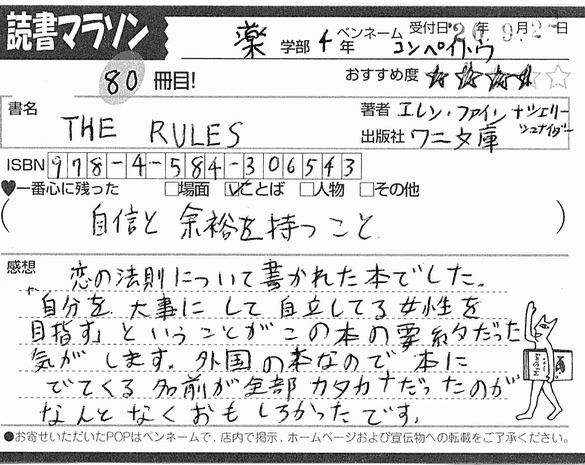 読書マラソン
薬 学部 4 年 ペンネーム コンペイトウ 受付日 年 月 日
80 冊目! おすすめ度
書名 THE RULES
著者 エレン・ファイン ナシェリーシュナイダー
出版社 ワニ文庫
ISBN 978-4-584-306543
♥一番心に残った □場面 ☑ことば □人物 □その他
(自信と 余裕を持つこと)
感想 恋の法則について書かれた本でした。
「自分を 大事に して 自立してる 女性を
目指す」と いうことが この本の 要点だった
気が します。外国の本なので 本に
でてくる 名前が全部 カタカナだったのが
なんと なく おもしろかった です。
●お寄せいただいたPOPはペンネームで、店内で掲示、ホームページおよび宣伝物への転載をご了承ください。